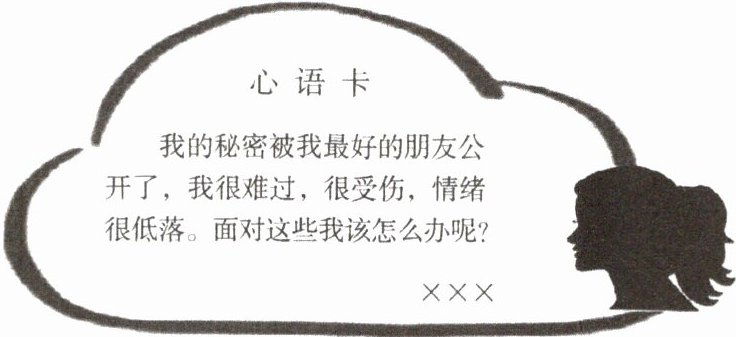 心语卡
我的秘密被我最好的朋友公
开了，我很难过，很受伤，情绪
很低落。面对这些我该怎么办呢？
×××